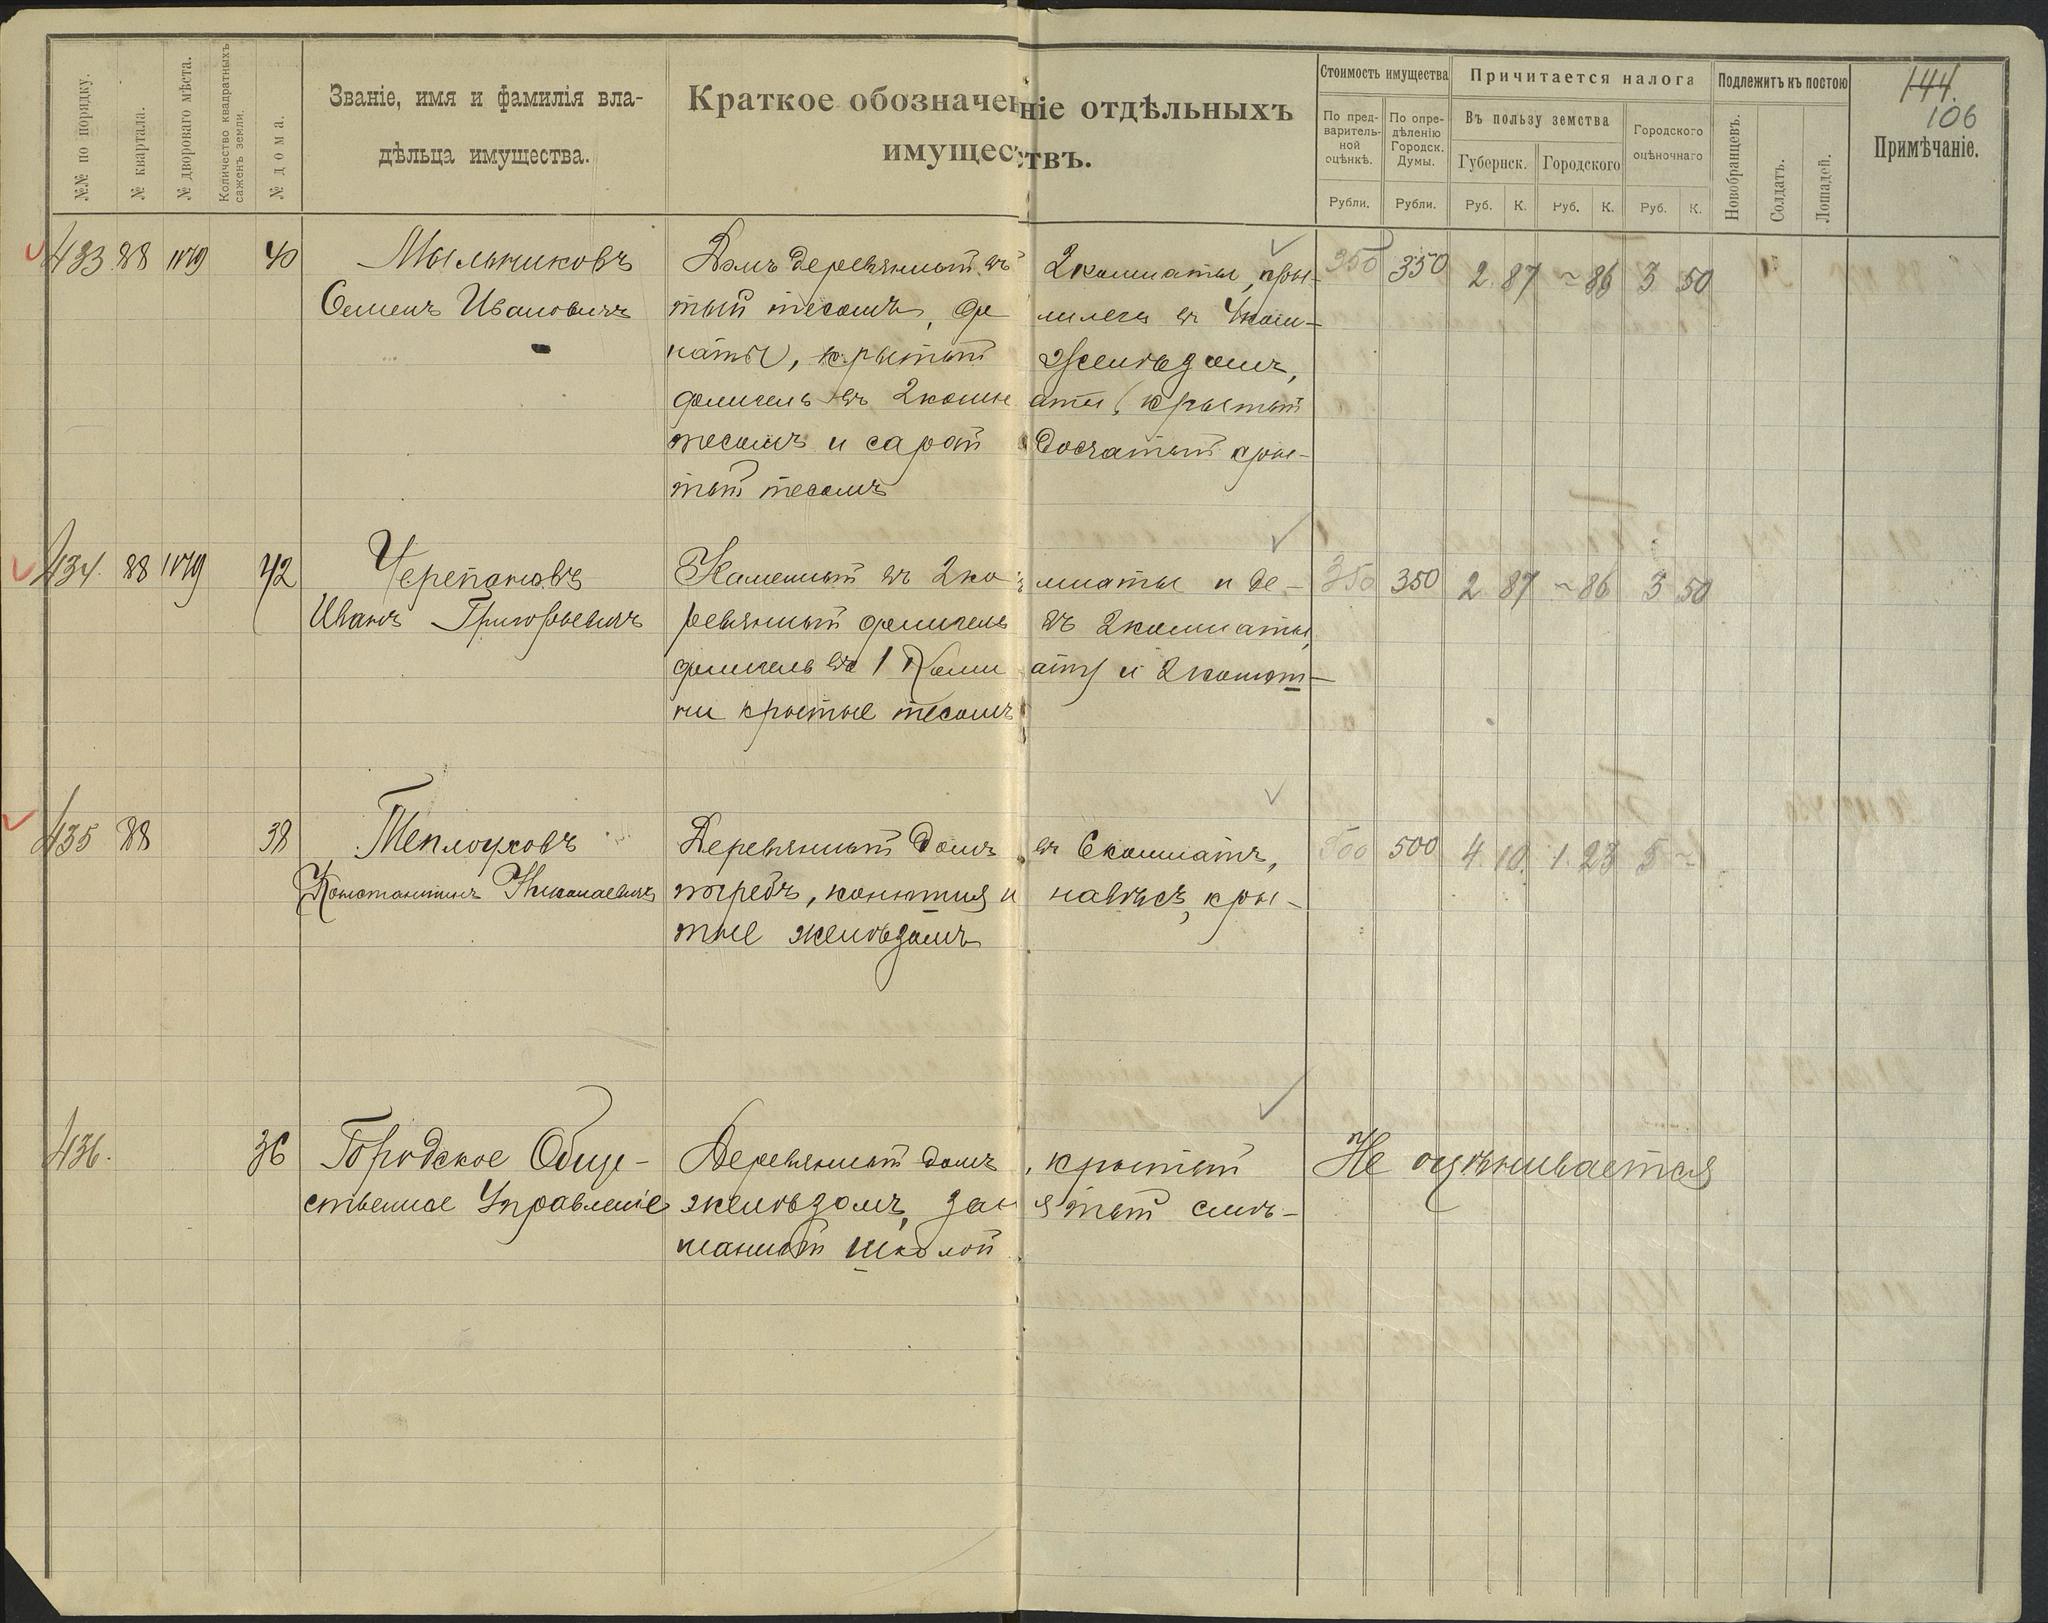 144.
106
№№ по порядку.
№ квартала.
№ двороваго мѣста.
Количество квадратныхъ сажень земли.
№ дома.
Званіе, имя и фамилія вла-
дѣльца имущества.
Краткое обозначеніе отдѣльныхъ
имуществъ.
Стоимость имущества
По пред-
варитель-
ной
оцѣнкѣ.
Рубли.
По опре-
дѣленію
Городск.
Думы.
Рубли.
Причитается налога
Въ пользу земства
Губернск.
Руб. К.
Городского
Руб. К.
Городского
оцѣночнаго
Руб. К.
Подлежитъ къ постою
Новобранцевъ.
Солдатъ.
Лошадей.
Примѣчаніе.
433 88 1179 40 Мыльниковъ Домъ деревянный въ 2 комнаты, кры- 350 350 2 87 ~ 86 3 50
Семенъ Ивановичъ тый тесомъ, флилегь въ 4 ком-
наты, крытый желѣзомъ,
флигель въ 2 комнаты, крытый
тесомъ и сарай досчатый кры-
тый тесомъ
434. 88 1179 42 Черепановъ Каменный въ 2 комнаты и де- 350 350 2 87 ~ 86 3 50
Иванъ Григорьевичъ ревянный флигель въ 2 комнаты,
флигель въ 1 комнату и 2 конюш-
ни крытые тесомъ
435 88 38 Теплоуховъ Деревянный домъ въ 6 комнатъ, 500 500 4 10. 1. 23 5 ~
Константинъ Николаевичъ погребъ, конюшня и навѣсъ, кры-
тые желѣзомъ
436. 36 Городское Обще- Деревянный домъ, крытый Не оцѣнивается
ственное Управленіе желѣзомъ, занятый смѣ-
шанной школой